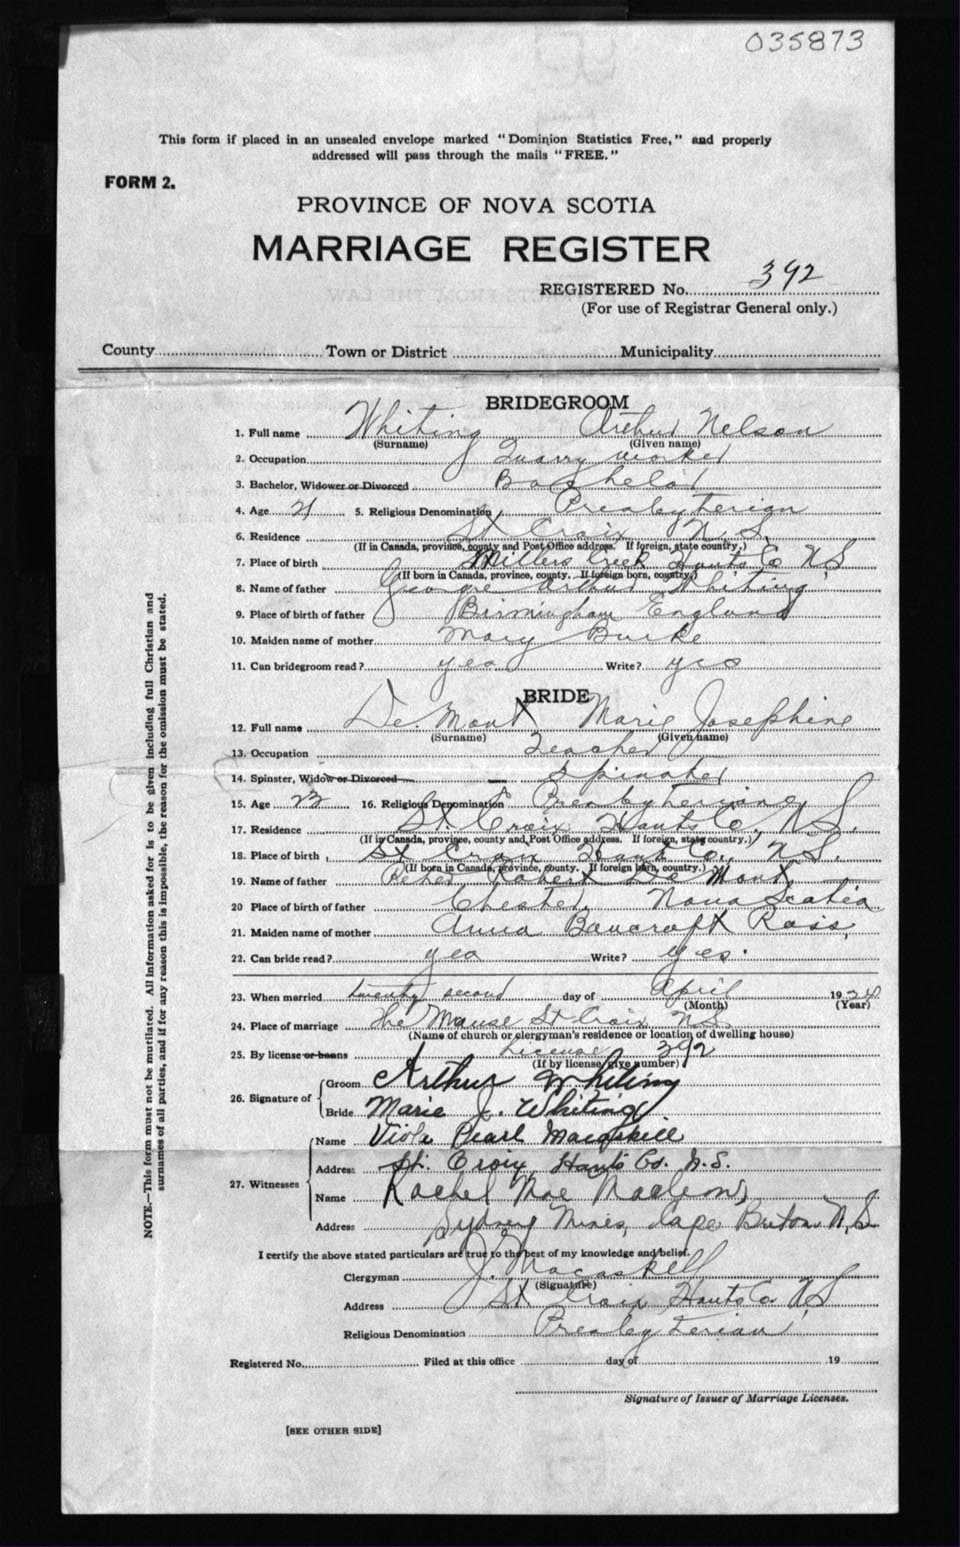 035873
This form if placed in an unsealed envelope marked "Dominion Statistics Free," and properly
addressed will pass through the mails "FREE."
FORM 2.
PROVINCE OF NOVA SCOTIA
MARRIAGE REGISTER
REGISTERED No. 392
(For use of Registrar General only.)
County Town or District Municipality
BRIDEGROOM
1. Full name Whiting Arthur Nelson
(Surname) (Given name)
2. Occupation Quarry worker
3. Bachelor, Widower or Divorced Bachelor
4. Age 21 5. Religious Denomination Presbyterian
6. Residence St Croix N.S.
(If in Canada, province, county and Post Office address. If foreign, state country.)
7. Place of birth Millers Creek Hants Co N S
(If born in Canada, province, county. If foreign born, country.)
8. Name of father George Arthur Whiting
9. Place of birth of father Birmingham England
10. Maiden name of mother Mary Burke
11. Can bridegroom read? yes Write? yes
BRIDE
12. Full name De Mont Marie Josephine
(Surname) (Given name)
13. Occupation Teacher
14. Spinster, Widow or Divorced Spinster
15. Age 23 16. Religious Denomination Presbyterian
17. Residence St Croix Hants Co, N S.
(If in Canada, province, county and Post Office address. If foreign, state country.)
18. Place of birth St Croix Hants Co, N S.
(If born in Canada, province, county. If foreign born, country.)
19. Name of father Peter Robert De Mont
20 Place of birth of father Chester, Nova Scotia
21. Maiden name of mother Anna Bancroft Ross,
22. Can bride read? yes Write? yes.
23. When married twenty second day of April 1924
(Month) (Year)
24. Place of marriage The Manse St Croix N.S.
(Name of church or clergyman's residence or location of dwelling house)
25. By license or banns License 392
(If by license, give number)
26. Signature of
Groom Arthur Whiting
Bride Marie J. Whiting
27. Witnesses
Name Viola Pearl Macaskill
Address St. Croix, Hants Co. N.S.
Name Rachel Mae MacLeod,
Address Sydney Mines, Cape Breton N.S.
I certify the above stated particulars are true to the best of my knowledge and belief.
Clergyman J. Macaskill
(Signature)
Address St Croix Hants Co N.S
Religious Denomination Presbyterian
Registered No. Filed at this office day of 19
Signature of Issuer of Marriage Licenses.
[SEE OTHER SIDE]
NOTE.—This form must not be mutilated. All information asked for is to be given including full Christian and
surnames of all parties, and if for any reason this is impossible, the reason for the omission must be stated.